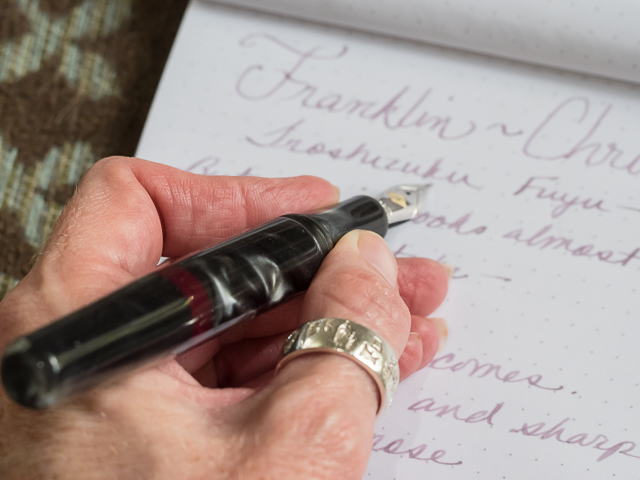 Franklin ~ Chri
Iroshizuku Fuyu-
looks almost
comes.
and sharp